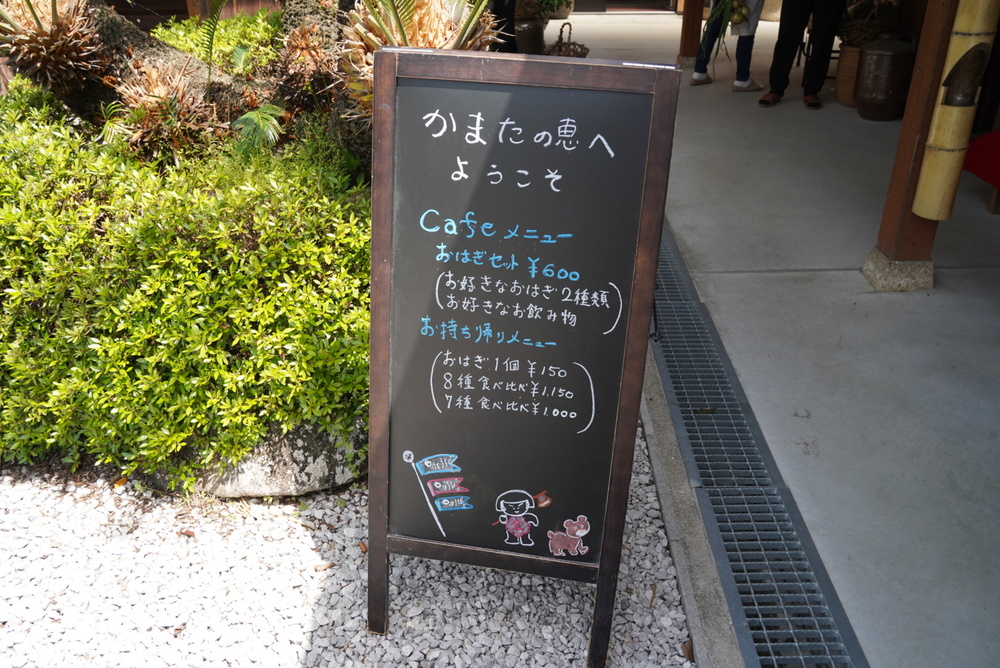 かまたの恵へ
ようこそ
Cafeメニュー
おはぎセット ¥600
(お好きなおはぎ2種類
お好きなお飲み物)
お持ち帰りメニュー
(おはぎ1個 ¥150
8種食べ比べ¥1,150
7種食べ比べ¥1,000)